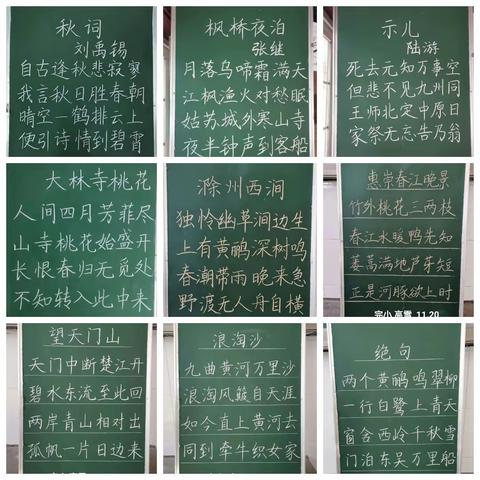 秋词
刘禹锡
自古逢秋悲寂寥
我言秋日胜春朝
晴空一鹤排云上
便引诗情到碧霄
枫桥夜泊
张继
月落乌啼霜满天
江枫渔火对愁眠
姑苏城外寒山寺
夜半钟声到客船
示儿
陆游
死去元知万事空
但悲不见九州同
王师北定中原日
家祭无忘告乃翁
大林寺桃花
人间四月芳菲尽
山寺桃花始盛开
长恨春归无觅处
不知转入此中来
滁州西涧
独怜幽草涧边生
上有黄鹂深树鸣
春潮带雨晚来急
野渡无人舟自横
惠崇春江晚景
竹外桃花三两枝
春江水暖鸭先知
蒌蒿满地芦芽短
正是河豚欲上时
高霞 11.20
望天门山
天门中断楚江开
碧水东流至此回
两岸青山相对出
孤帆一片日边来
浪淘沙
九曲黄河万里沙
浪淘风簸自天涯
如今直上黄河去
同到牵牛织女家
绝句
两个黄鹂鸣翠柳
一行白鹭上青天
窗含西岭千秋雪
门泊东吴万里船